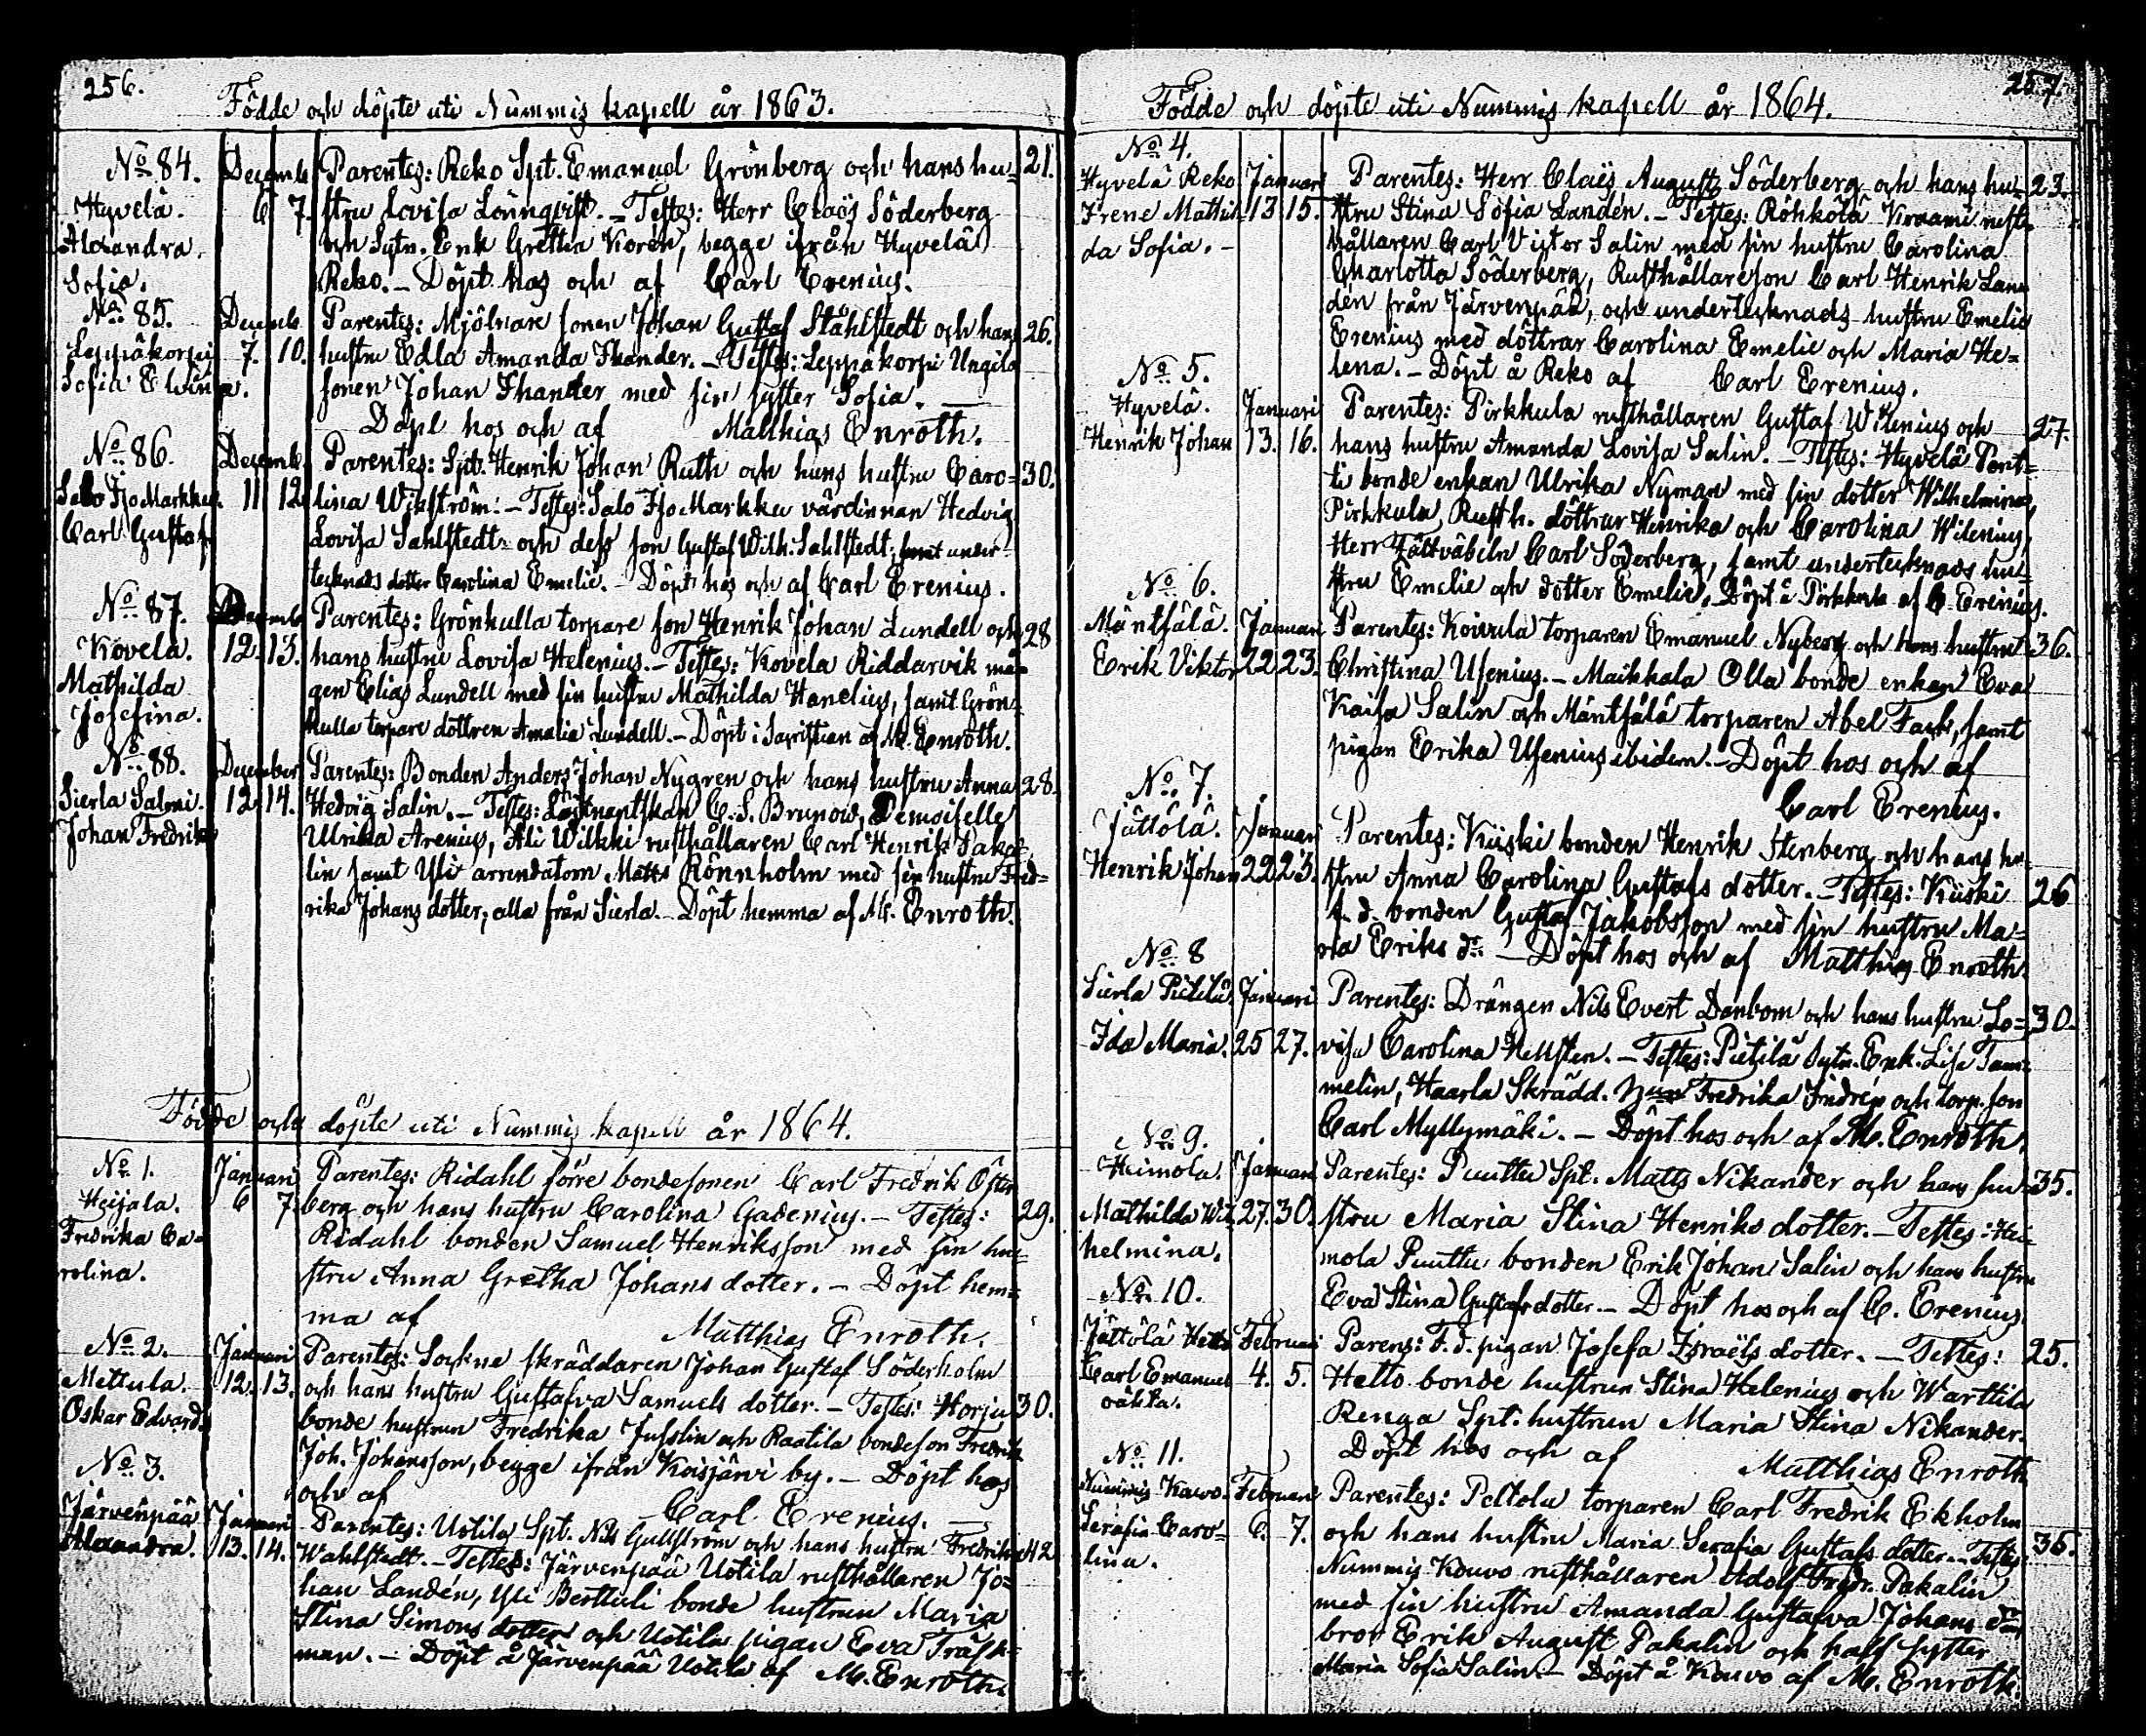 256.
Födde och döpte uti Nummis kapell år 1863.
No 84. Decemb. Parentes: Reko Spt. Emanuel Grönberg och hans hu= 21.
Hyvelä. 6 7. stru Lovisa Lönnqvist. – Testes: Herr Claës Söderberg
Alexandra och Sytn. Enk Gretha Korén, begge ifrån Hyvelä
Sofia. Reko. – Döpt hos och af Carl Erenius.
No 85. Decemb. Parentes: Mjölnare sonen Johan Gustaf Ståhlstedt och hans 26.
Leppäkorpi 7. 10. hustru Edla Amanda Thander. – Testes: Leppäkorpi Ungils
Sofia Elvina. sonen Johan Thander med sin syster Sofia. –
Döpt hos och af Matthias Enroth.
No 86. Decemb. Parentes: Spt. Henrik Johan Ruth och hans hustru Caro= 30.
Salo Iso Markku. 11 12. lina Wikström. – Testes: Salo Iso Markku värdinnan Hedvig
Carl Gustaf Lovisa Sahlstedt och dess son Gustaf Wilh. Sahlstedt, samt under=
tecknads dotter Carolina Emelie. – Döpt hos och af Carl Erenius.
No 87. Decemb. Parentes: Grönkulla torpare son Henrik Johan Lundell och 28
Kovela. 12. 13. hans hustru Lovisa Helenius. – Testes: Kovela Riddarvik må=
Mathilda gen Elias Lundell med sin hustru Mathilda Hanelius, samt Grön=
Josefina. kulla torpare dottren Amalia Lundell. – Döpt i Sacristian af M. Enroth.
No 88. December Parentes: Bonden Anders Johan Nygren och hans hustru Anna 28.
Sierla Salmi. 12. 14. Hedvig Salin. – Testes: Löjtnantskan C. S. Brunow, Demoiselle
Johan Fredrik Ulrika Arenius, Ali Wilkki rusthållaren Carl Henrik Paka=
lin samt Yli arrendatorn Matts Rönnholm med sin hustru Fred=
rika Johans dotter, alla från Sierla. – Döpt hemma af M. Enroth.
Födde och döpte uti Nummis kapell år 1864.
No 1. Januari Parentes: Ridahl förre bondesonen Carl Fredrik Öster
Heijala. 6 7. berg och hans hustru Carolina Gadenius. – Testes: 29.
Fredrika Ca= Ridahl bonden Samuel Henriksson med sin hu=
rolina. stru Anna Gretha Johans dotter. – Döpt hem=
ma af Matthias Enroth.
No 2. Januari Parentes: Sockne skräddaren Johan Gustaf Söderholm
Mettula. 12. 13. och hans hustru Gustafva Samuels dotter. – Testes: Horju 30.
Oskar Edvard. bonde hustrun Fredrika Jusslin och Raatila bondeson Fredrik
Joh. Johansson, begge ifrån Koisjärvi by. – Döpt hos
och af Carl Erenius. –
No 3.
Järvenpää Januari Parentes: Uotila Spt. Nils Gullström och hans hustru Fredrika 42
Alexandra. 13. 14. Wahlstedt. – Testes: Järvenpää Uotila rusthållaren Jo=
han Landén, Yli Berttuli bonde hustrun Maria
Stina Simons dotter och Uotila pigan Eva Träsk=
man. – Döpt å Järvenpää Uotila af M. Enroth.
257.
Födde och döpte uti Nummis kapell år 1864.
No 4.
Hyvelä Reko Januari Parentes: Herr Claës August Söderberg och hans hu= 23.
Irene Mathil= 13 15. stru Stina Sofia Landén. – Testes: Röhkölä Kraami rust=
da Sofia. – hållaren Carl Victor Salin med sin hustru Carolina
Charlotta Söderberg, Rusthållareson Carl Henrik Lan=
dén från Järvenpää, och undertecknads hustru Emelie
Erenius med döttrar Carolina Emelie och Maria He=
lena. – Döpt å Reko af Carl Erenius.
No 5.
Hyvelä. Januari Parentes: Pirkkula rusthållaren Gustaf Wilenius och 27.
Henrik Johan 13. 16. hans hustru Amanda Lovisa Salin. – Testes: Hyvelä Pent=
ti bonde enkan Ulrika Nyman med sin dotter Wilhelmina,
Pirkkula Rusth. döttrar Henrika och Carolina Wilenius,
Herr Fältväbeln Carl Söderberg, samt undertecknads hu=
stru Emelie och dotter Emelie. – Döpt å Pirkkula af C. Erenius.
No 6.
Mäntsälä. Januari Parentes: Koivula torparen Emanuel Nyberg och hans hustru 36.
Erik Viktor 22 23. Christina Usenius. – Maikkala Olla bonde enkan Eva
Kaisa Salin och Mäntsälä torparen Abel Fack, samt
pigan Erika Usenius ibidem. – Döpt hos och af
Carl Erenius.
No 7.
Jättölä. Januari Parentes: Kiiski bonden Henrik Stenberg och hans hu=
Henrik Johan 22 23. stru Anna Carolina Gustafs dotter. – Testes: Kiiski 26
f. d. bonden Gustaf Jakobsson med sin hustru Ma=
ria Eriks dr. – Döpt hos och af Matthias Enroth
No 8
Sierla Pietilä Januari Parentes: Drängen Nils Evert Danbom och hans hustru Lo= 30.
Ida Maria. 25 27. visa Carolina Hellsten. – Testes: Pietilä Sytn. Enk. Lisa Tam=
melin, Haarla Skrädd. Fredrika Fridrén och torp. son
Carl Myllymäki. – Döpt hos och af M. Enroth.
No 9.
Heimola. Januari Parentes: Puuttu Spt. Matts Nikander och hans hu= 35.
Mathilda Wil= 27. 30. stru Maria Stina Henriks dotter. – Testes: Hei=
helmina. mola Puuttu bonden Erik Johan Salin och hans hustru
Eva Stina Gustafs dotter. – Döpt hos och af C. Erenius.
No 10.
Jättölä Hetto Februari Parens: F. d. pigan Josefa Israëls dotter. – Testes: 25.
Carl Emanuel 4. 5. Hetto bonde hustrun Stina Helenius och Warttila
oäkta. Renga Spt. hustrun Maria Stina Nikander.
Döpt hos och af Matthias Enroth
No 11.
Nummis Kouvo. Februari Parentes: Peltola torparen Carl Fredrik Ekholm
Serafia Caro= 6. 7. och hans hustru Maria Serafia Gustafs dotter. – Testes: 36.
lina. Nummis Kouvo rusthållaren Adolf Fredr. Pakalin
med sin hustru Amanda Gustafva Johans dr,
bror Erik August Pakalin och half syster
Maria Sofia Salin. – Döpt å Kouvo af M. Enroth.